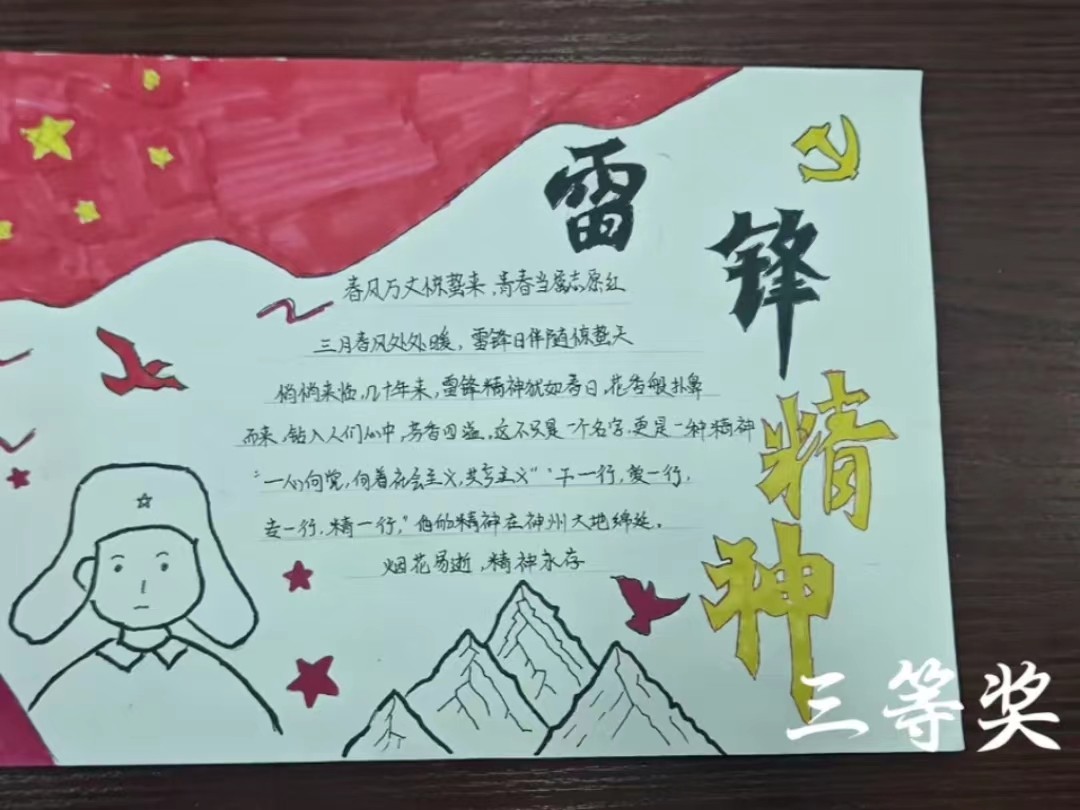 雷
锋
精
神
春风万丈惊蛰来，青春当属志原红
三月春风处处暖，雷锋日伴随惊蛰天
悄悄来临，几十年来，雷锋精神犹如春日，花香般扑鼻
而来，钻入人们心中，芳香四溢，这不只是一个名字，更是一种精神
“一心向党，向着社会主义，共产主义”“干一行，爱一行，
专一行，精一行，”他的精神在神州大地绵延。
烟花易逝，精神永存
三等奖